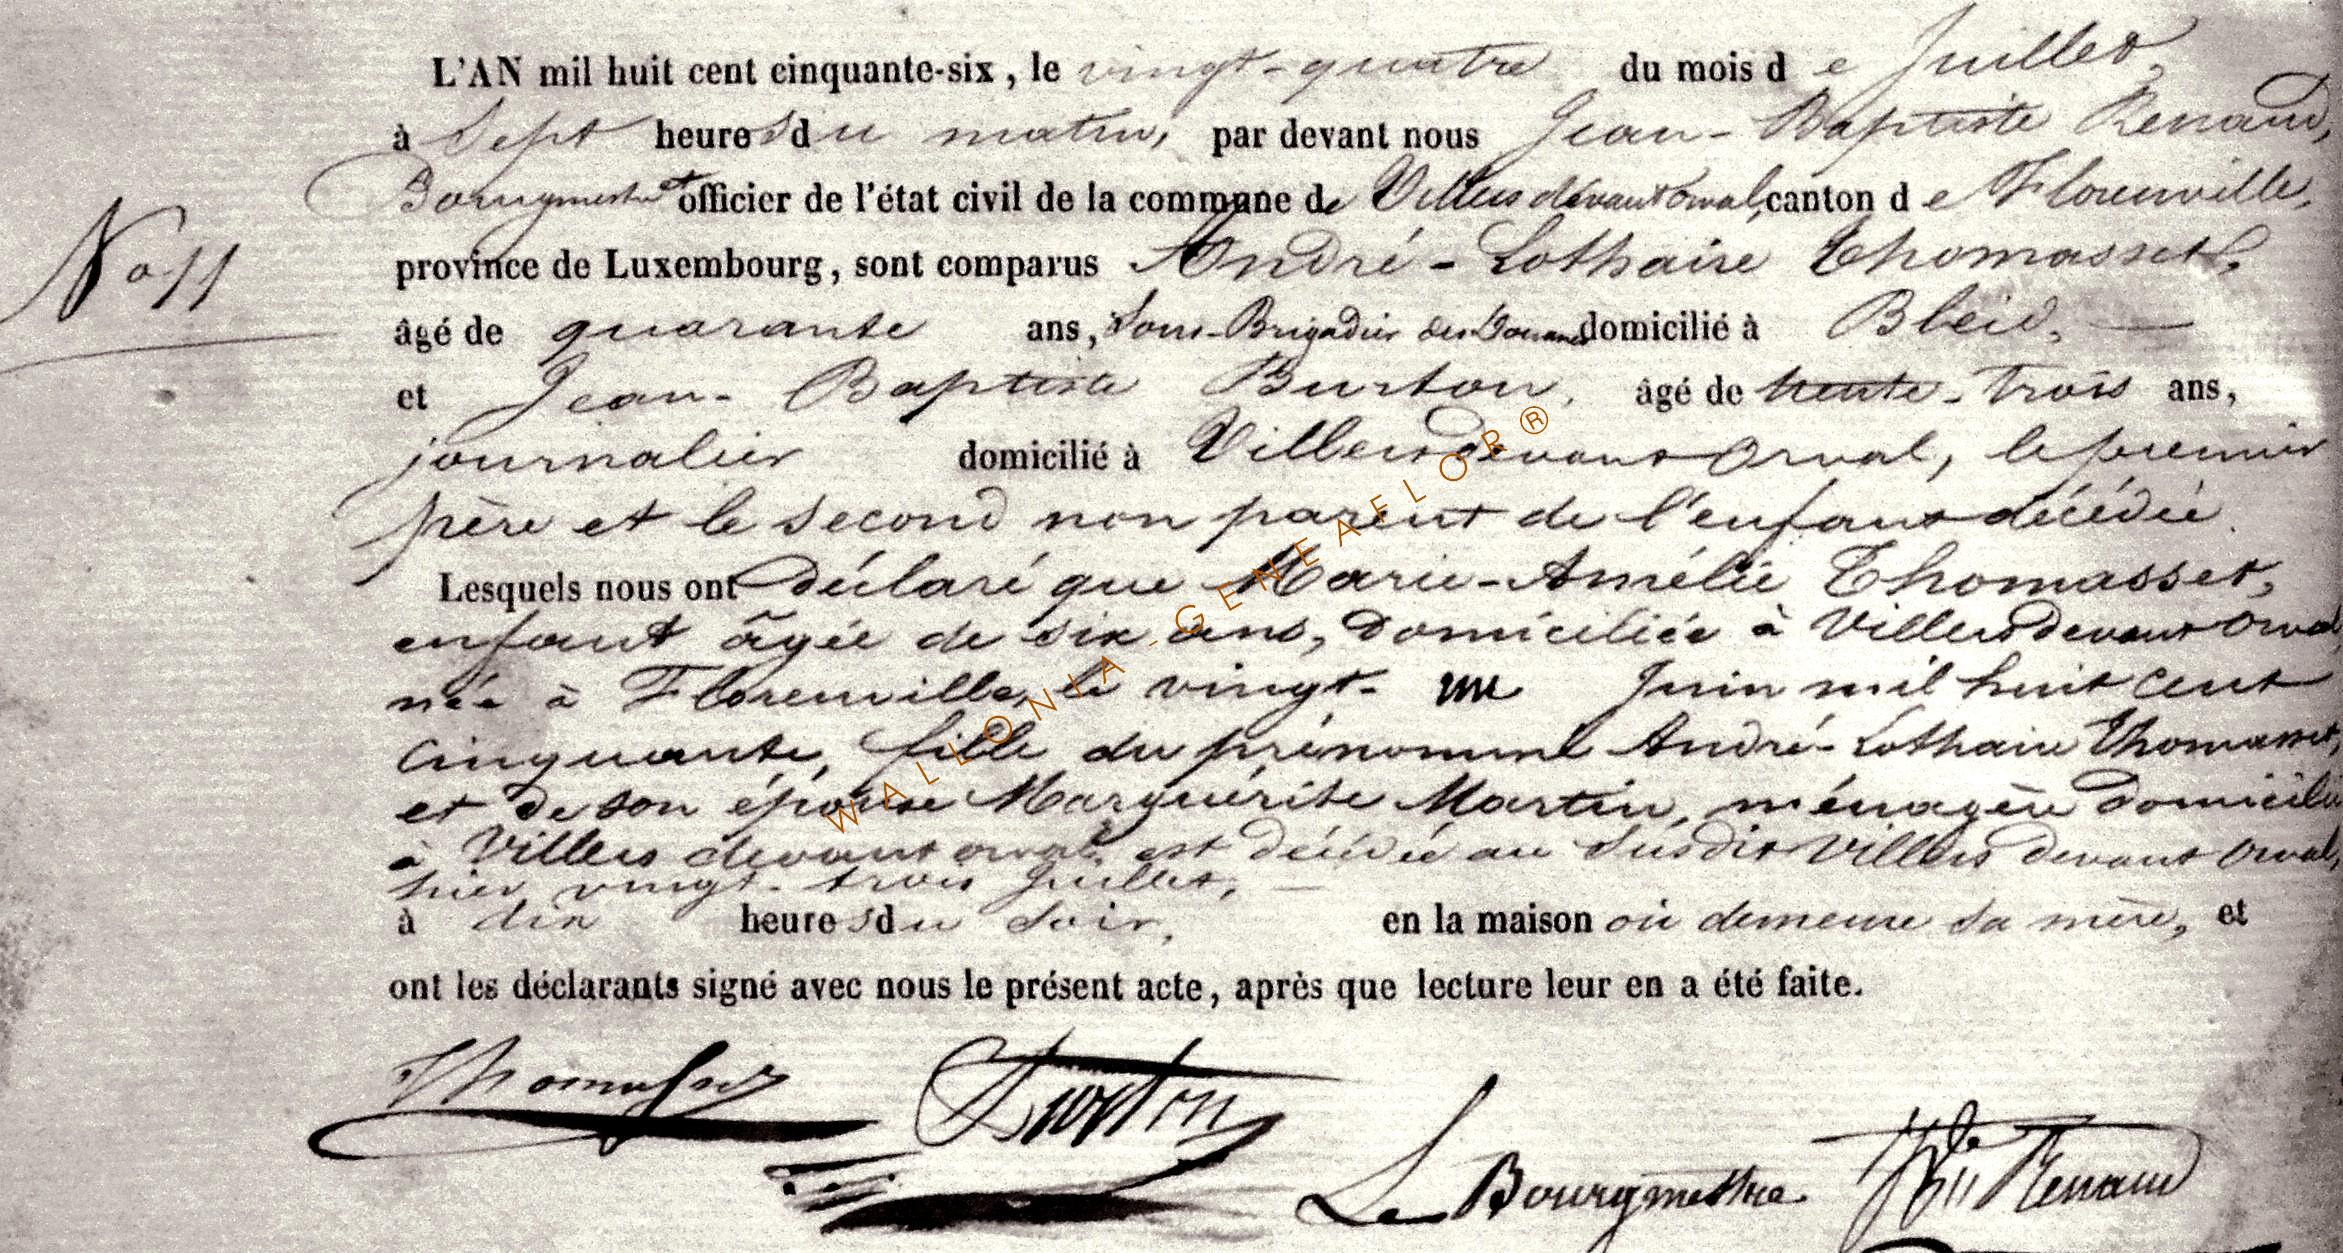 L'AN mil huit cent cinquante-six, le vingt-quatre du mois de Juillet,
à Sept heures du matin, par devant nous Jean-Baptiste Renaud,
Bourgmestre et officier de l'état civil de la commune de Villers devant Orval, canton de Florenville,
No 11
province de Luxembourg, sont comparus André-Lothaire Thomasset,
âgé de quarante ans, Sous-Brigadier des Douanes domicilié à Bleid,
et Jean-Baptiste Burton, âgé de trente-trois ans,
journalier domicilié à Villers devant Orval, le premier
père et le second non parent de l'enfant décédée
Lesquels nous ont déclaré que Marie-Amélie Thomasset,
enfant âgée de six ans, domiciliée à Villers devant Orval,
née à Florenville, le vingt-un Juin mil huit cent
cinquante, fille du prénommé André-Lothaire Thomasset,
et de son épouse Marguérite Martin, ménagère domiciliée
à Villers devant orval, est décédée au susdit Villers devant Orval,
hier vingt-trois Juillet,
à dix heures du soir, en la maison où demeure sa mère, et
ont les déclarants signé avec nous le présent acte, après que lecture leur en a été faite.
Thomasset Burton
Le Bourgmestre Renaud
WALLONIA-GENEAFLOR®